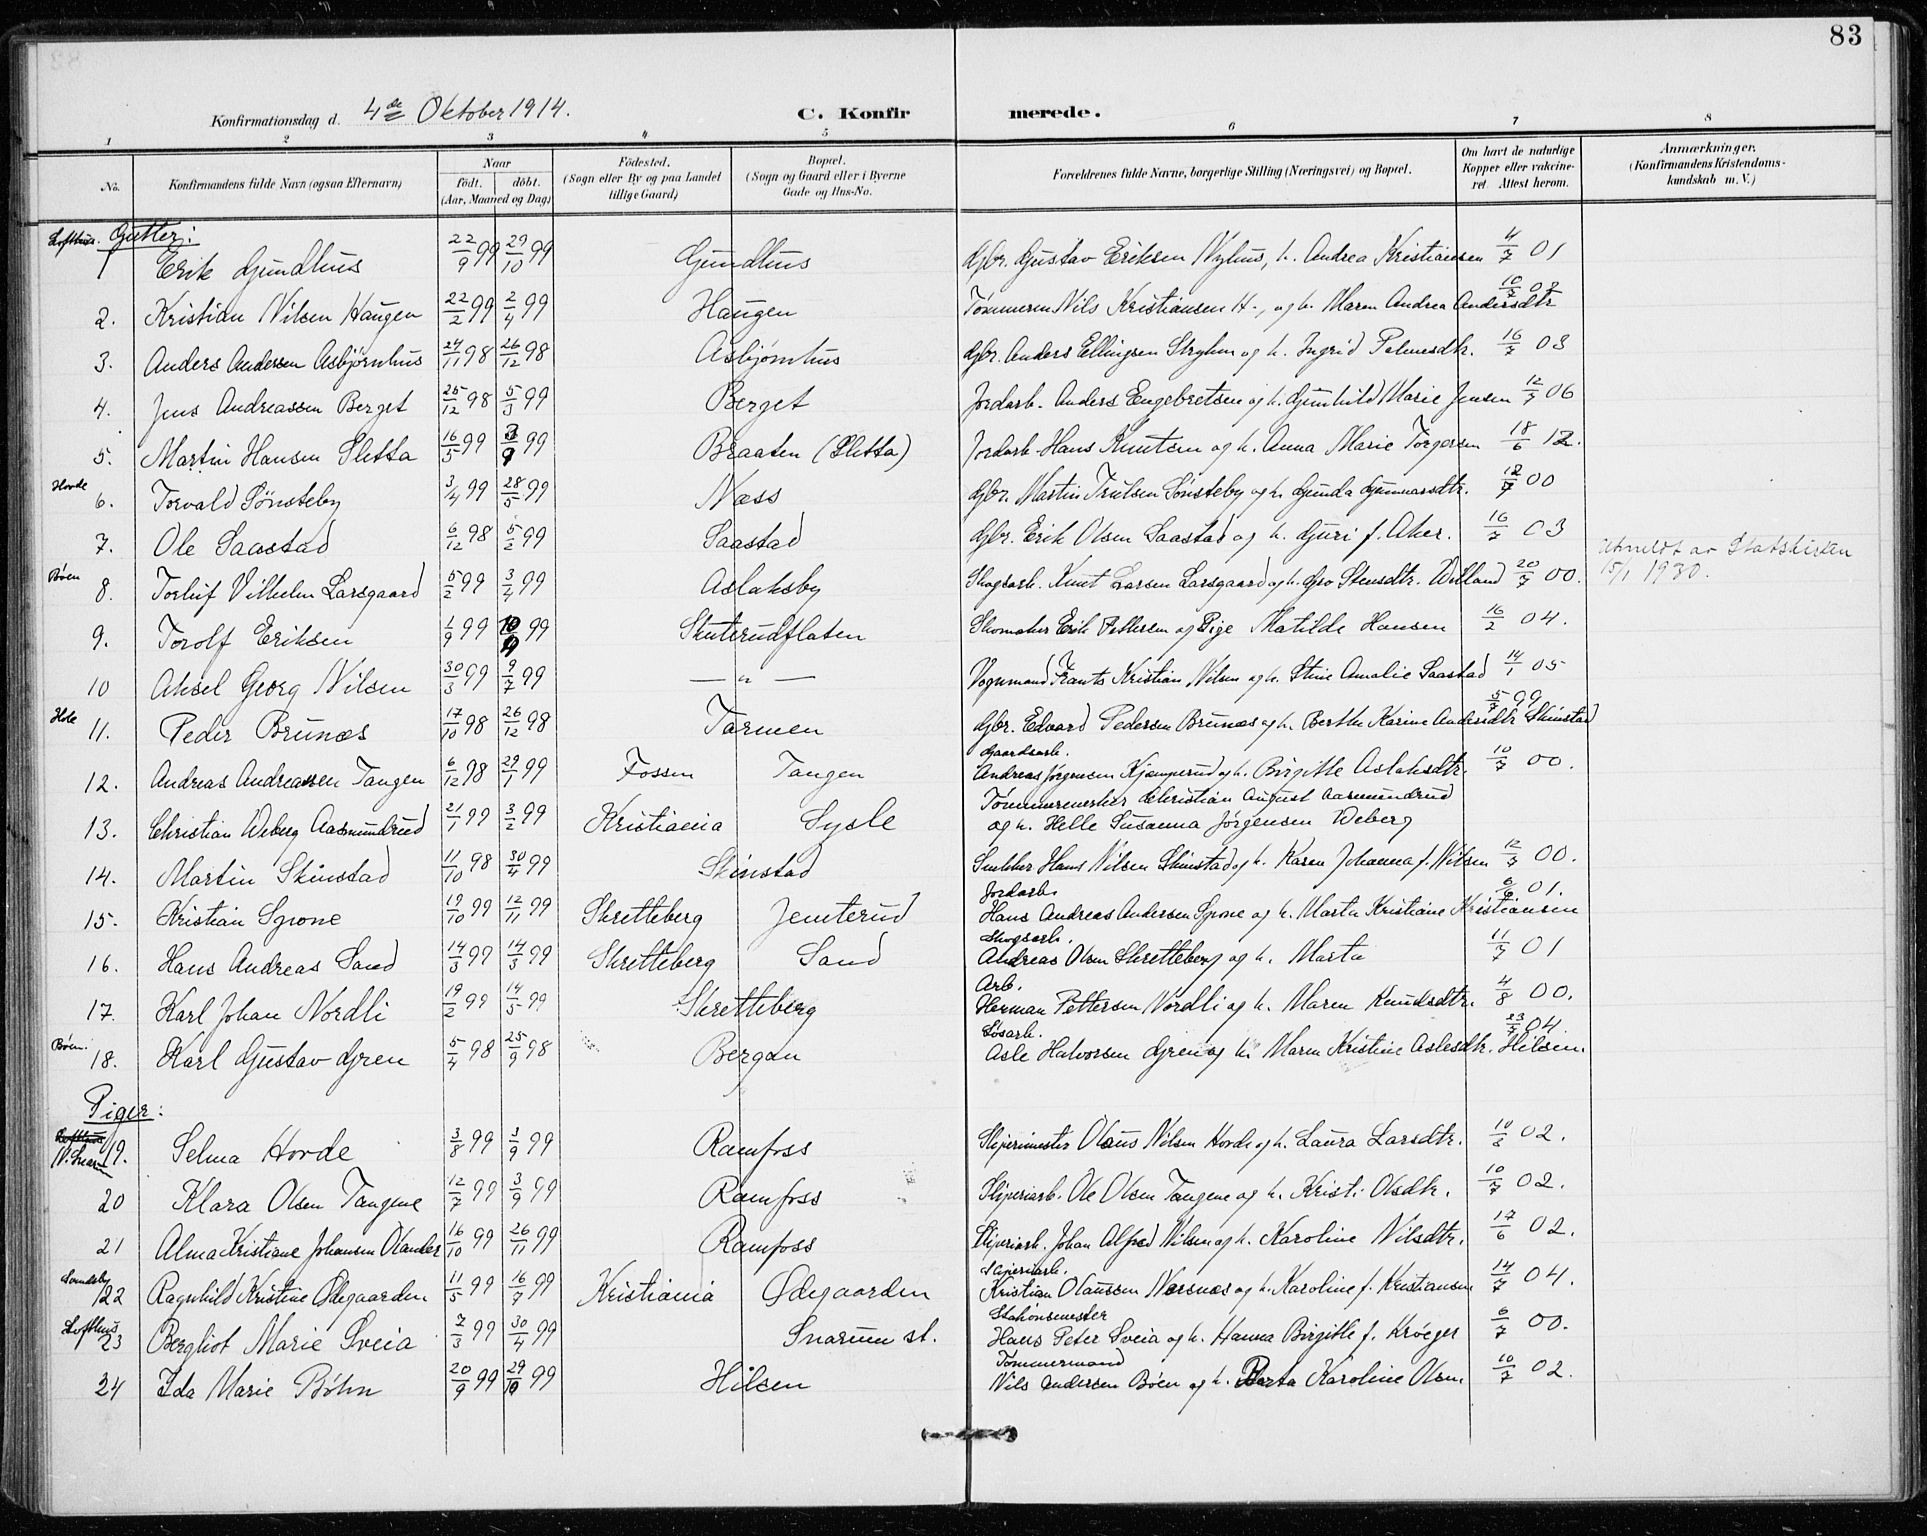 83
Konfirmationsdag d. 4de Oktober 1914. C. Konfirmerede.
1 2 3 4 5 6 7 8
No. Konfirmandens fulde Navn (ogsaa Efternavn) Naar født. døbt. (Aar, Maaned og Dag) Fødested. (Sogn eller By og paa Landet tillige Gaard) Bopæl. (Sogn og Gaard eller i Byerne Gade og Hus-No. Forældrenes fulde Navne, borgerlige Stilling (Næringsvei) og Bopæl. Om havt de naturlige Kopper eller vakcineret Attest herom. Anmærkninger. (Konfirmandens Kristendomskundskab m. V.)
Lofthus. Gutter:
1 Erik Gundhus 22/9 99 29/10 99 Gundhus Gbr. Gustav Eriksen Nyhus, h. Andrea Kristiansen 4/7 01
2. Kristian Nilsen Haugen 22/2 99 2/4 99 Haugen Tømmerm Nils Kristiansen H., og h. Maren Andrea Andersdtr 10/7 02
3. Anders Andersen Asbjørnhus 24/11 98 26/12 98 Asbjørnhus Gbr. Anders Ellingsen Stryken og h. Ingrid Palmesdtr. 16/7 03
4. Jens Andreassen Berget 25/12 98 5/3 99 Berget Jordarb. Anders Engebretsen og h. Gunhild Marie Jensen 12/7 06
5. Martin Hansen Sletta 16/5 99 3/9 99 Braaten (Sletta) Jordarb. Hans Knutsen og h. Anna Marie Torgersen 18/6 12.
Hovde 6. Torvald Sønsteby 3/4 99 28/5 99 Næss Gbr. Martin Trulsen Sønsteby og h. Gunda Gunnarsdtr. 12/7 00
7. Ole Saastad 6/12 98 5/2 99 Saastad Gbr. Erik Olsen Saastad og h. Guri f. Aker. 16/7 03
Bøen 8. Torleif Vilhelm Larsgaard 5/2 99 3/4 99 Aslaksby Skogsarb. Knut Larsen Larsgaard og h. Gro Stensdtr. Villand 20/7 00. Utmeldt av Statskirken 15/1 1930.
9. Torolf Eriksen 1/9 99 10/9 99 Skuterudflaten Skomaker Erik Pettersen og Pige Matilde Hansen 16/2 04.
10 Aksel Georg Nilsen 30/3 99 9/7 99 — " — Vognmand Frants Kristian Nilsen og h. Stine Amalie Saastad 14/1 05
Hole 11. Peder Brunæs 17/10 98 26/12 98 Tarmen Gbr. Edvard Pedersen Brunæs og h. Berthe Karine Andersdtr Skinstad 5/7 99
12. Andreas Andreassen Tangen 6/12 98 29/1 99 Fossen Tangen Gaardsarb. Andreas Jørgensen Kjæmperud og h. Birgitte Aslaksdtr. 10/7 00.
13. Christian Weberg Aasmundrud 21/1 99 3/2 99 Kristiania Sysle Tømmermerker Christian August Aasmundrud
og h. Helle Susanna Jørgensen Weberg
14. Martin Skinstad 11/10 98 30/4 99 Skinstad Snekker Hans Nilsen Skinstad og h. Karen Johanna f. Nilsen 12/7 00.
15. Kristian Spone 19/10 99 12/11 99 Skretteberg Jemterud Jordarb. Hans Andreas Andersen Spone og h. Marta Kristiane Kristiansen 6/6 01.
16. Hans Andreas Sand 14/3 99 14/3 99 Skretteberg Sand Skogsarb. Andreas Olsen Skretteberg og h. Marta 11/7 01
17. Karl Johan Nordli 19/2 99 14/5 99 Skretteberg Arb. Herman Pettersen Nordli og h. Maren Knudsdtr. 4/8 00.
Bøen. 18. Karl Gustav Gren 5/4 98 25/9 98 Bergan Løsarb. Asle Halvorsen Gren og h. Maren Kristine Aslesdtr. Hilsen. 23/7 04.
Piger:
Lofthus N. Snarum 19. Selma Hovde 3/8 99 3/9 99 Ramfoss Sliperimester Olaus Nilsen Hovde og h. Laura Larsdtr. 10/2 02.
20 Klara Olsen Tangene 12/7 99 3/9 99 Ramfoss Sliperiarb. Ole Olsen Tangene og h. Kristi Olsdtr. 10/7 02.
21 Alma Kristiane Johansen Olander 16/10 99 26/11 99 Ramfoss Sliperiarb. Johan Alfred Nilsen og h. Karoline Nilsdtr. 17/6 02.
22 Ragnhild Kristine Ødegaarden 11/5 99 16/7 99 Kristiania Ødegaarden Sliperiarb. Kristian Olaussen Næsnæs og h. Karoline f. Kristiansen 14/7 04.
Lofthus 23 Bergliot Marie Sveia 7/3 99 30/4 99 Snarum st. Stationsmester Hans Peter Sveia og h. Hanna Birgitte f. Krøeger 6/7 00.
24 Ida Marie Bøhn 20/9 99 29/10 99 Hilsen Tømmermand Nils Andersen Bøen og h. Berta Karoline Olsen. 10/7 02.